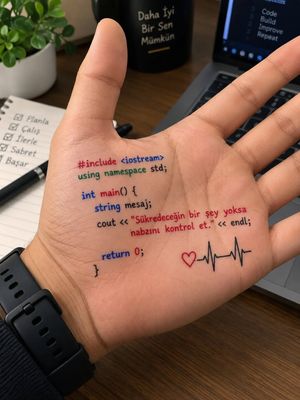 Daha İyi
Bir Sen
Mümkün
Code
Build
Improve
Repeat
Planla
Çalış
İlerle
Sabret
Başar
#include <iostream>
using namespace std;
int main() {
string mesaj;
cout << "Şükredeceğin bir şey yoksa
nabzını kontrol et." << endl;
return 0;
}